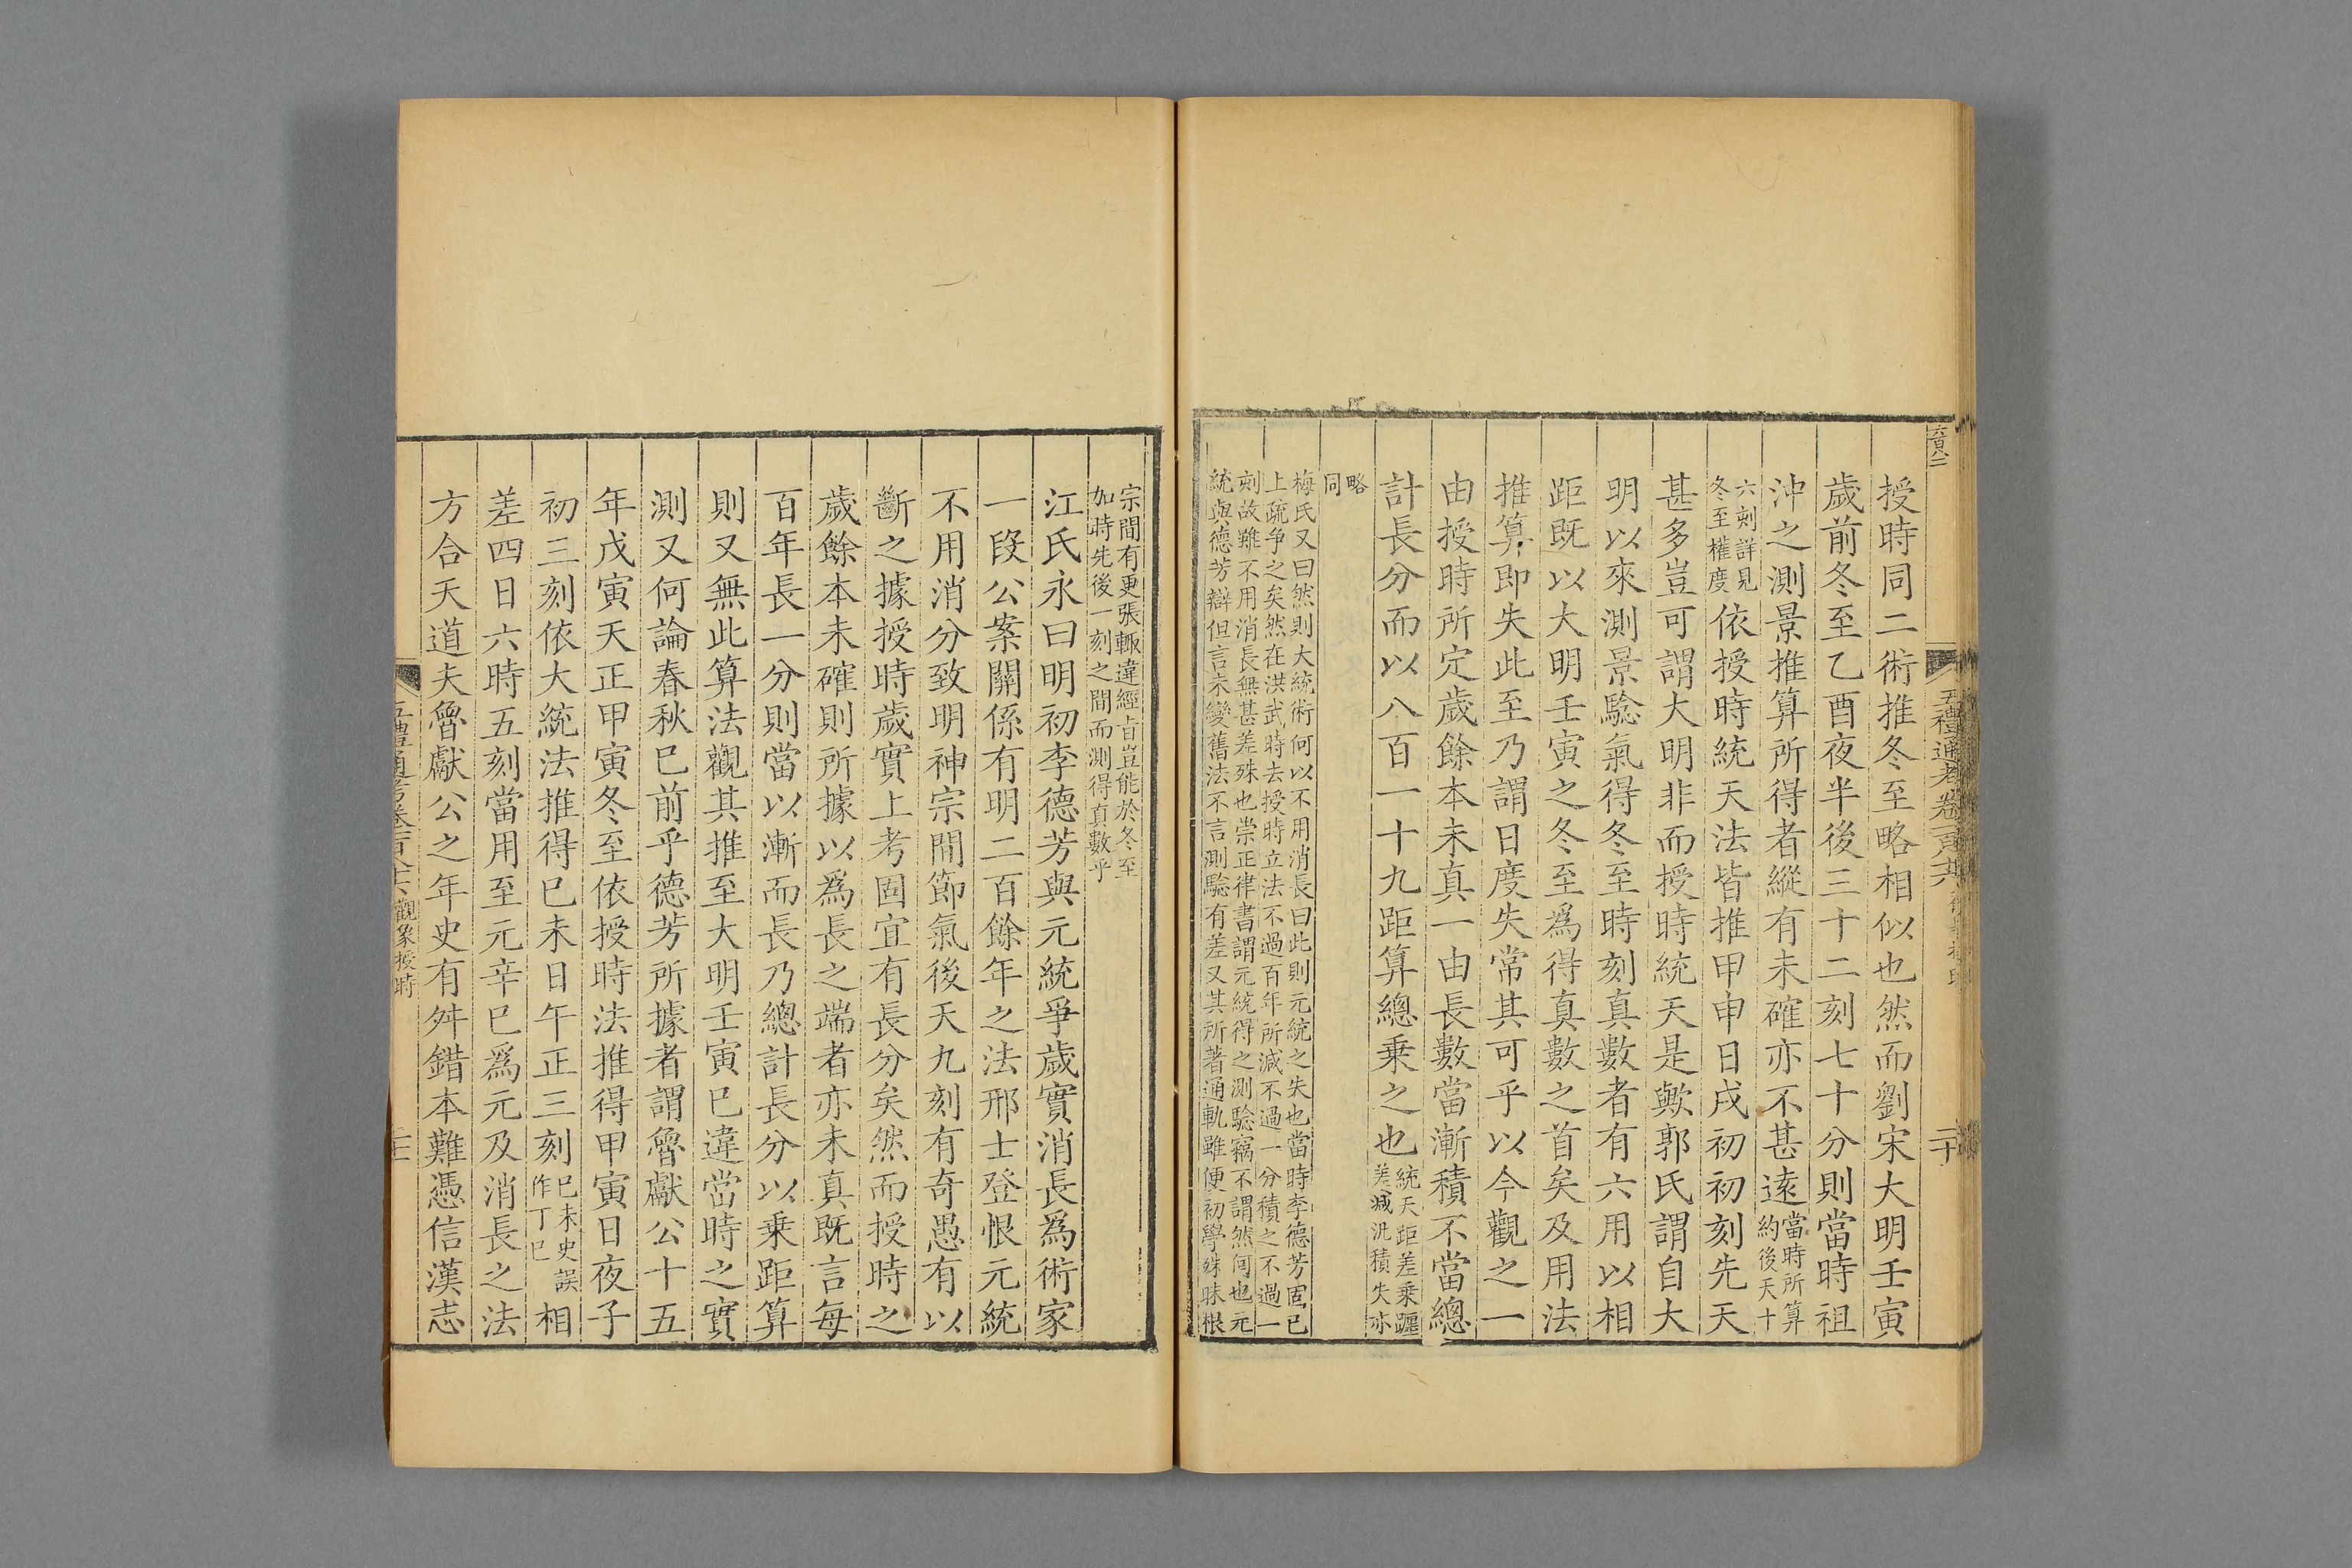 授時同二術推冬至略相似也然而劉宋大明壬寅
歲前冬至乙酉夜半後三十二刻七十分則當時祖
沖之測景推算所得者縱有未確亦不甚遠當時所算約後天十
六刻詳見冬至權度依授時統天法皆推甲申日戌初初刻先天
甚多豈可謂大明非而授時統天是歟郭氏謂自大
明以來測景驗氣得冬至時刻真數者有六用以相
距既以大明壬寅之冬至為得真數之首矣及用法
推算即失此至乃謂日度失常其可乎以今觀之一
由授時所定歲餘本未真一由長數當漸積不當總
計長分而以八百一十九距算總乗之也統天距差乗躔差減汎積失亦
略同
梅氏又曰然則大統術何以不用消長曰此則元統之失也當時李德芳固已
上疏爭之矣然在洪武時去授時立法不過百年所減不過一分積之不過一
刻故雖不用消長無甚差殊也崇正律書謂元統得之測驗竊不謂然何也元
統與德芳辯但言未變舊法不言測驗有差又其所著通軌雖便初學殊昧根
宗間有更張輙違經㫖豈能於冬至
加時先後一刻之間而測得真數乎
江氏永曰明初李德芳與元統爭歲實消長爲術家
一段公案關係有明二百餘年之法邢士登恨元統
不用消分致明神宗間節氣後天九刻有奇愚有以
斷之據授時歲實上考固宜有長分矣然而授時之
歲餘本未確則所據以爲長之端者亦未真既言每
百年長一分則當以漸而長乃總計長分以乗距算
則又無此算法觀其推至大明壬寅已違當時之實
測又何論春秋已前乎德芳所據者謂魯獻公十五
年戊寅天正甲寅冬至依授時法推得甲寅日夜子
初三刻依大統法推得己未日午正三刻己未史誤作丁巳相
差四日六時五刻當用至元辛巳爲元及消長之法
方合天道夫魯獻公之年史有舛錯本難憑信漢志
五禮通考卷一百八十六
二十
觀象授時